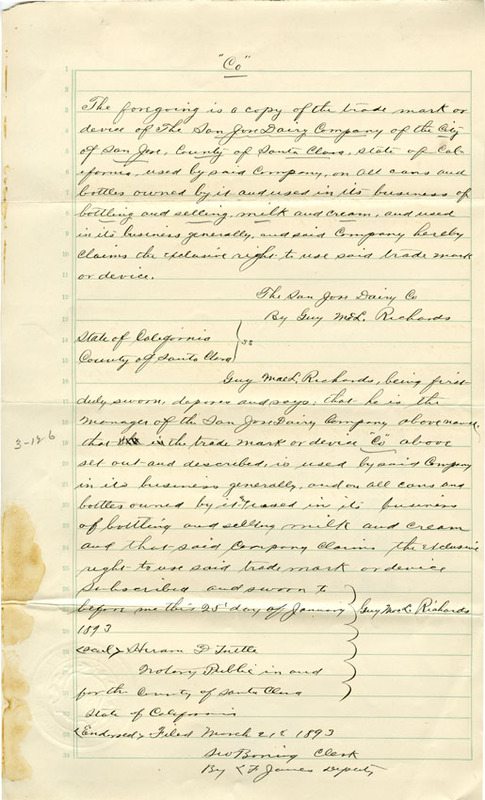 "Co"
The foregoing is a copy of the trade mark or
device of The San Jose Dairy Company of the City
of San Jose, County of Santa Clara, state of Cal-
ifornia, used by said Company, on all cans and
bottles owned by it and used in its business of
bottling and selling, milk and cream, and used
in its business generally, and said Company hereby
claims the exclusive right to use said trade mark
or device.
The San Jose Dairy Co
By Guy McL. Richards
State of California
County of Santa Clara } ss
Guy MacL. Richards, being first
duly sworn, deposes and says; that he is the
manager of the San Jose Dairy Company above named
that is the trade mark or device "Co" above
set out and described, is used by said Company
in its business generally, and on all cans and
bottles owned by it & used in its business
of bottling and selling milk and cream
and that said Company claims the exclusive
right to use said trade mark or device
Subscribed and sworn to
before me this 25" day of January } Guy MacL. Richards
1893
<seal> Hiram D Tuttle
Notary Public in and
for the County of Santa Clara
State of California
<Endorsed> Filed March 21st 1893
Clerk
By James Deputy
3-12-6